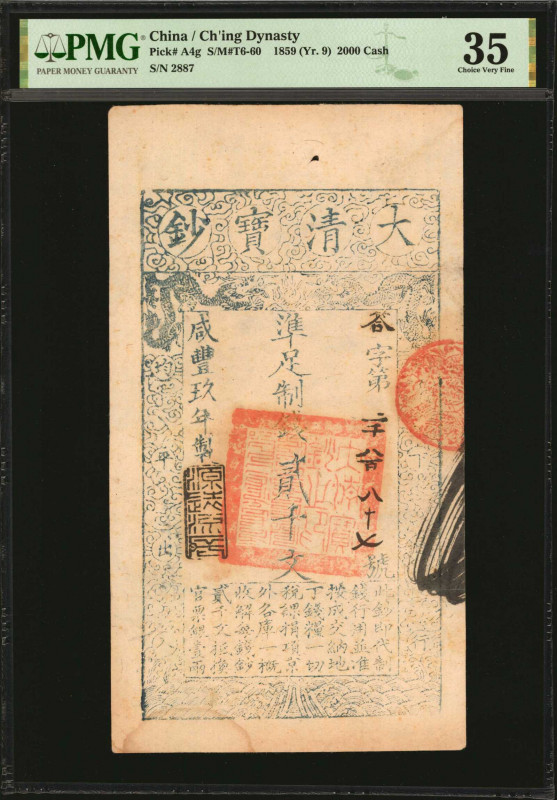 PMG®
PAPER MONEY GUARANTY
China / Ch'ing Dynasty
Pick# A4g S/M#T6-60 1859 (Yr. 9) 2000 Cash
S/N 2887
35
Choice Very Fine
大清寶鈔
咨字第二千八百八十七號
準足制錢貳千文
咸豐玖年製
此鈔即代制
錢行用並准
按成交納地
丁錢糧一切
稅課捐項京
外各庫一概
收解每鈔
貳千文抵換
官票銀壹兩
均
平
出
行